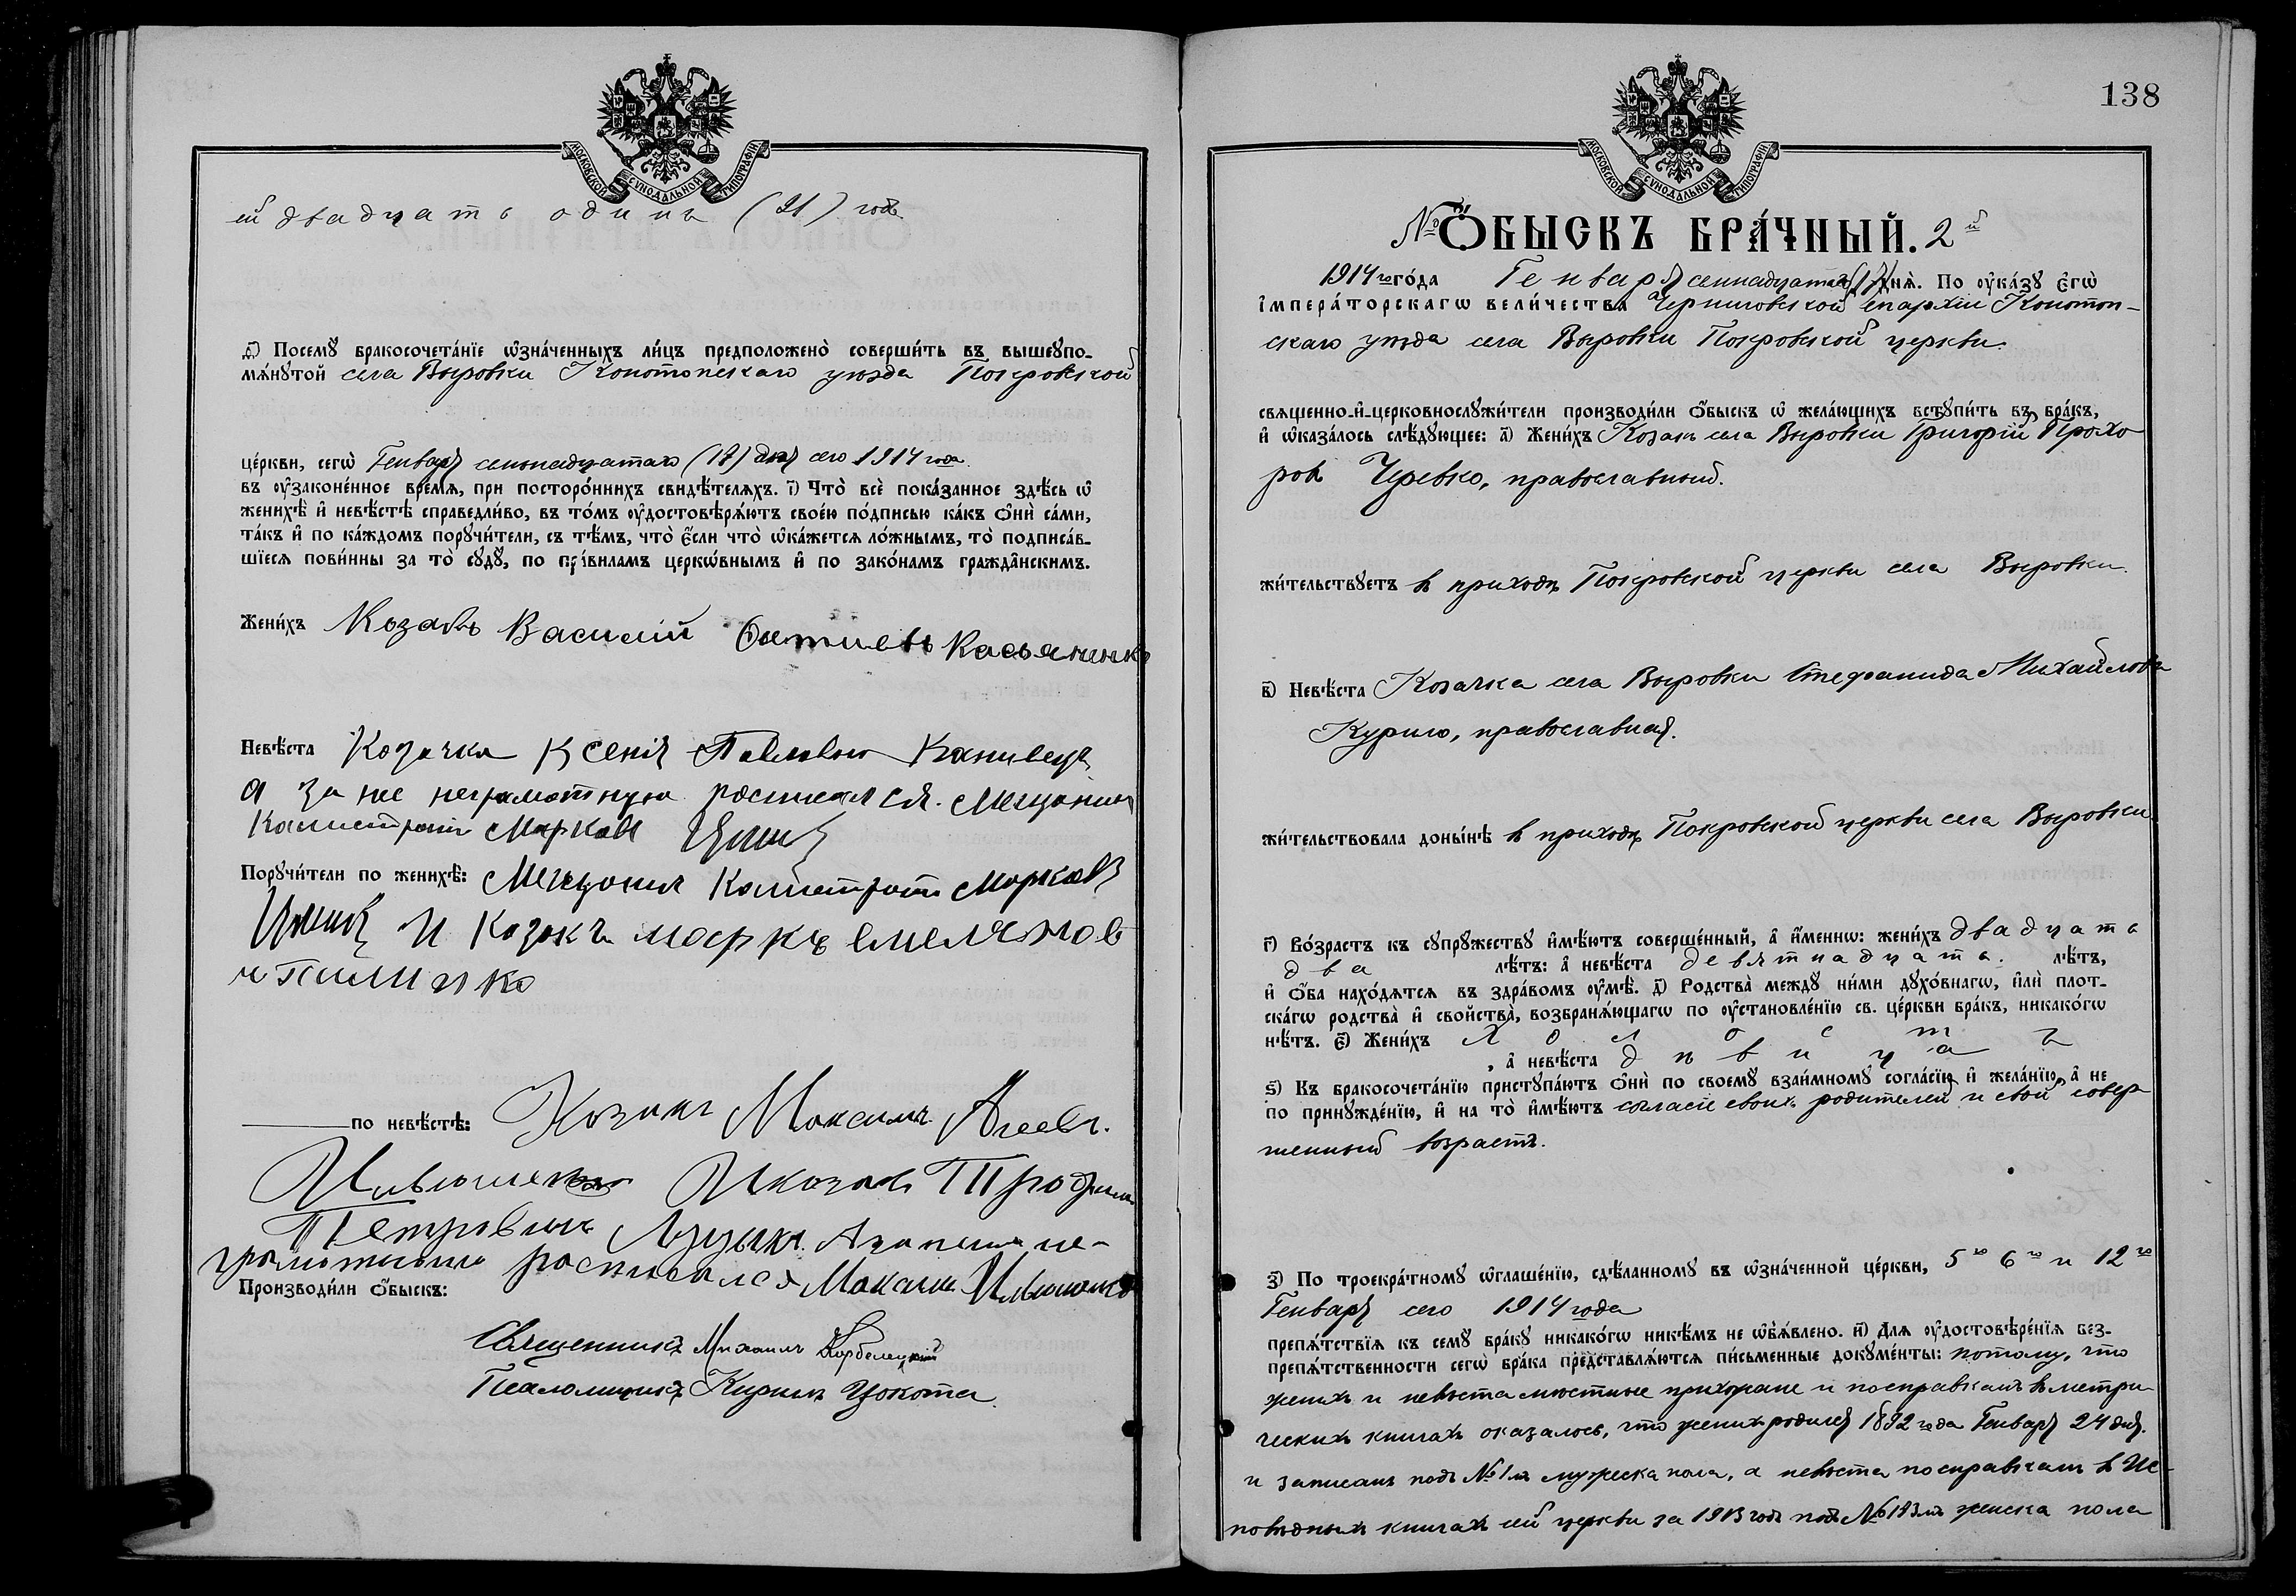 МОСКОВСКОЙ СѴНОДАЛЬНОЙ ТИПОГРАФІИ
ей двадцать одинъ (21) годъ.
Ѳ҃) Посемꙋ̀ бракосочета́нїе ѡ҆зна́ченныхъ ли́цъ предположено̀ соверши́ть въ вышеꙋпо-
мѧ́нꙋтой села Выровки Конотопскаго уѣзда Покровской
це́ркви, сегѡ̀ Генваря семнадцатаго (17) дня сего 1914 года.
въ ᲂу҆зако́ненное вре́мѧ, при посторо́ннихъ свидѣ́телѧхъ. І҃) Что̀ всѐ пока́занное здѣ́сь ѡ҆
женихѣ̀ и҆ невѣ́стѣ справедли́во, въ то́мъ ᲂу҆достовѣрѧ́ютъ свое́ю по́дписью ка́къ ѻ҆нѝ са́ми,
та́къ и҆ по ка́ждомъ порꙋчи́тели, съ тѣ́мъ, что̀ є҆́сли что̀ ѡ҆ка́жетсѧ ло́жнымъ, то̀ подписа́в-
шїесѧ пови́нны за то̀ сꙋдꙋ̀, по пра́виламъ церкѡ́внымъ и҆ по зако́намъ гражда̂нскимъ.
Жени́хъ Козакъ Василій Фотіевъ Касьяненко
Невѣ́ста Козачка Ксенія Павлова Канивецъ
а за нее неграмотную росписался. Мещанинъ
Калистратъ Марковъ
Порꙋчи́тели по женихѣ̀: Мещанинъ Калистратъ Марковъ
и Козакъ Маркъ Емельянов
ъ Пилипко
по невѣ́стѣ: Козакъ Максимъ Агеевъ.
Ильюшенко И козакъ Трофимъ
Петровичъ Музыка. А за него не-
грамотнаго росписался Максимъ Ильюшенко
Производи́ли ѻ҆́быскъ:
Священникъ Михаилъ Корбелецкій
Псаломщикъ Кирилъ Цокота.
138
МОСКОВСКОЙ СѴНОДАЛЬНОЙ ТИПОГРАФІИ
№ ѺБЫСКЪ БРА́ЧНЫЙ. 2й
1914го го́да Генваря семнадцатаго (17) днѧ̀. По ᲂу҆ка́зꙋ Є҆гѡ̀
І҆мпера́торскагѡ вели́чества Черниговской епархіи Конотоп-
скаго уѣзда села Выровки Покровской церкви.
свѧщенно-и҆-церковнослꙋжи́тели производи́ли ѻ҆́быскъ ѡ҆ жела́ющихъ встꙋпи́ть въ бра́къ,
и҆ ѡ҆каза́лось слѣ́дꙋющее: А҃) Жени́хъ Козакъ села Выровки Григорій Прохо
ровъ Черевко, православный.
жи́тельствꙋетъ въ приходѣ Покровской церкви села Выровки.
В҃) Невѣ́ста Козачка села Выровки Стефанида Михайлова
Курило, православная.
жи́тельствовала доны́нѣ въ приходѣ Покровской церкви села Выровки
Г҃) Во́зрастъ къ сꙋпрꙋ́жествꙋ и҆мѣ́ютъ соверше́нный, а҆ и҆́меннѡ: жени́хъ двадцать
два лѣ́тъ: а҆ невѣ́ста девятнадцать. лѣ́тъ,
и҆ ѻ҆́ба нахо́дѧтсѧ въ здра́вомъ ᲂу҆мѣ̀. Д҃) Родства̀ междꙋ̀ ни́ми дꙋхо́внагѡ, и҆лѝ плот-
ска́гѡ родства̀ и҆ свойства̀, возбранѧ́ющагѡ по ᲂу҆становле́нїю св. це́ркви бра́къ, никако́гѡ
нѣ́тъ. Є҃) Жени́хъ холостъ
, а҆ невѣ́ста дѣвица
Ѕ҃) Къ бракосочета́нїю пристꙋпа́ютъ ѻ҆нѝ по своемꙋ̀ взаи́мномꙋ согла́сїю и҆ жела́нїю, а҆ не
по принꙋжде́нїю, и҆ на то̀ и҆мѣ́ютъ согласіе своихъ родителей и свой совер
шенный возрастъ.
З҃) По троекра́тномꙋ ѡ҆глаше́нїю, сдѣ́ланномꙋ въ ѡ҆зна́ченной це́ркви, 5го 6го и 12го
Генваря сего 1914 года
препѧ́тствїѧ къ семꙋ̀ бра́кꙋ никако́гѡ никѣ́мъ не ѡ҆б̾ѧ́влено. И҃) Длѧ ᲂу҆достовѣре́нїѧ без-
препѧ́тственности сегѡ̀ бра́ка представлѧ́ютсѧ пи́сьменные докꙋме́нты: потому, что
женихъ и невѣста мѣстные прихожане и по справкамъ въ метри
ческихъ книгахъ оказалось, что женихъ родился 1892 года Генваря 24 дня.
и записанъ подъ № 1мъ мужеска пола, а невѣста по справкамъ въ Ис-
повѣдныхъ книгахъ сей церкви за 1913 годъ подъ № 183мъ женска пола